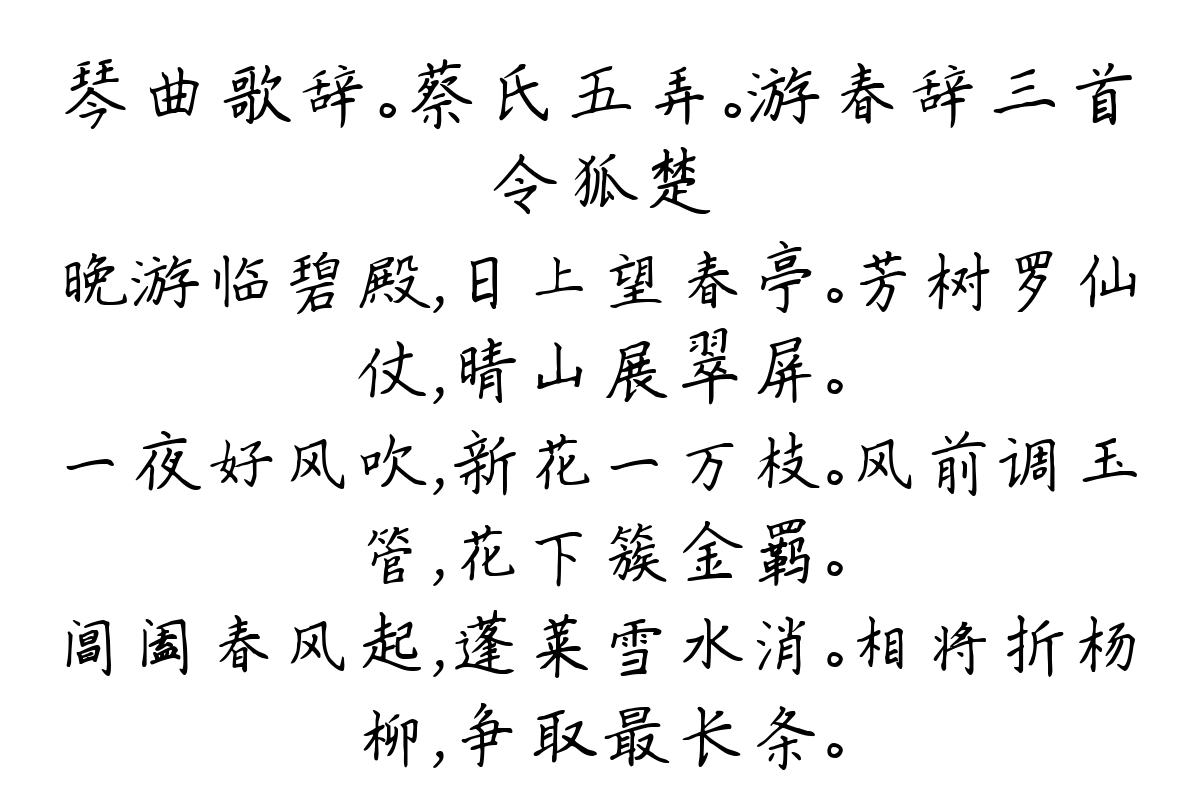 琴曲歌辞。蔡氏五弄。游春辞三首
令狐楚
晚游临碧殿,日上望春亭。芳树罗仙
仗,晴山展翠屏。
一夜好风吹,新花一万枝。风前调玉
管,花下簇金羁。
阊阖春风起,蓬莱雪水消。相将折杨
柳,争取最长条。